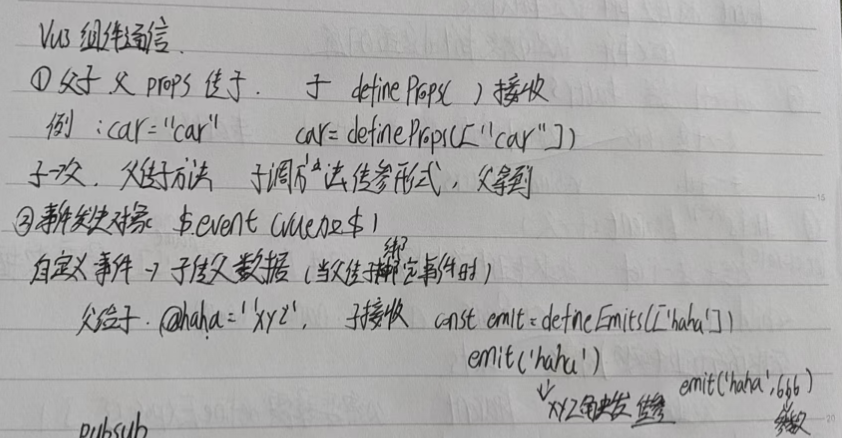 Vue3 组件通信.
① 父子 父 props 传子. 子 defineProps( ) 接收
例 :car="car" car=defineProps(["car"])
子→父. 父传子方法 子调方法传参形式, 父拿到
② 事件 对象 $event (vue2 $)
自定义事件 → 子传父数据 (当父传子绑定事件时)
父给子. @haha='xyz'. 子接收 const emit=defineEmits(['haha'])
emit('haha') emit('haha',666)
↓ xyz触发 传参 参数
pubsub